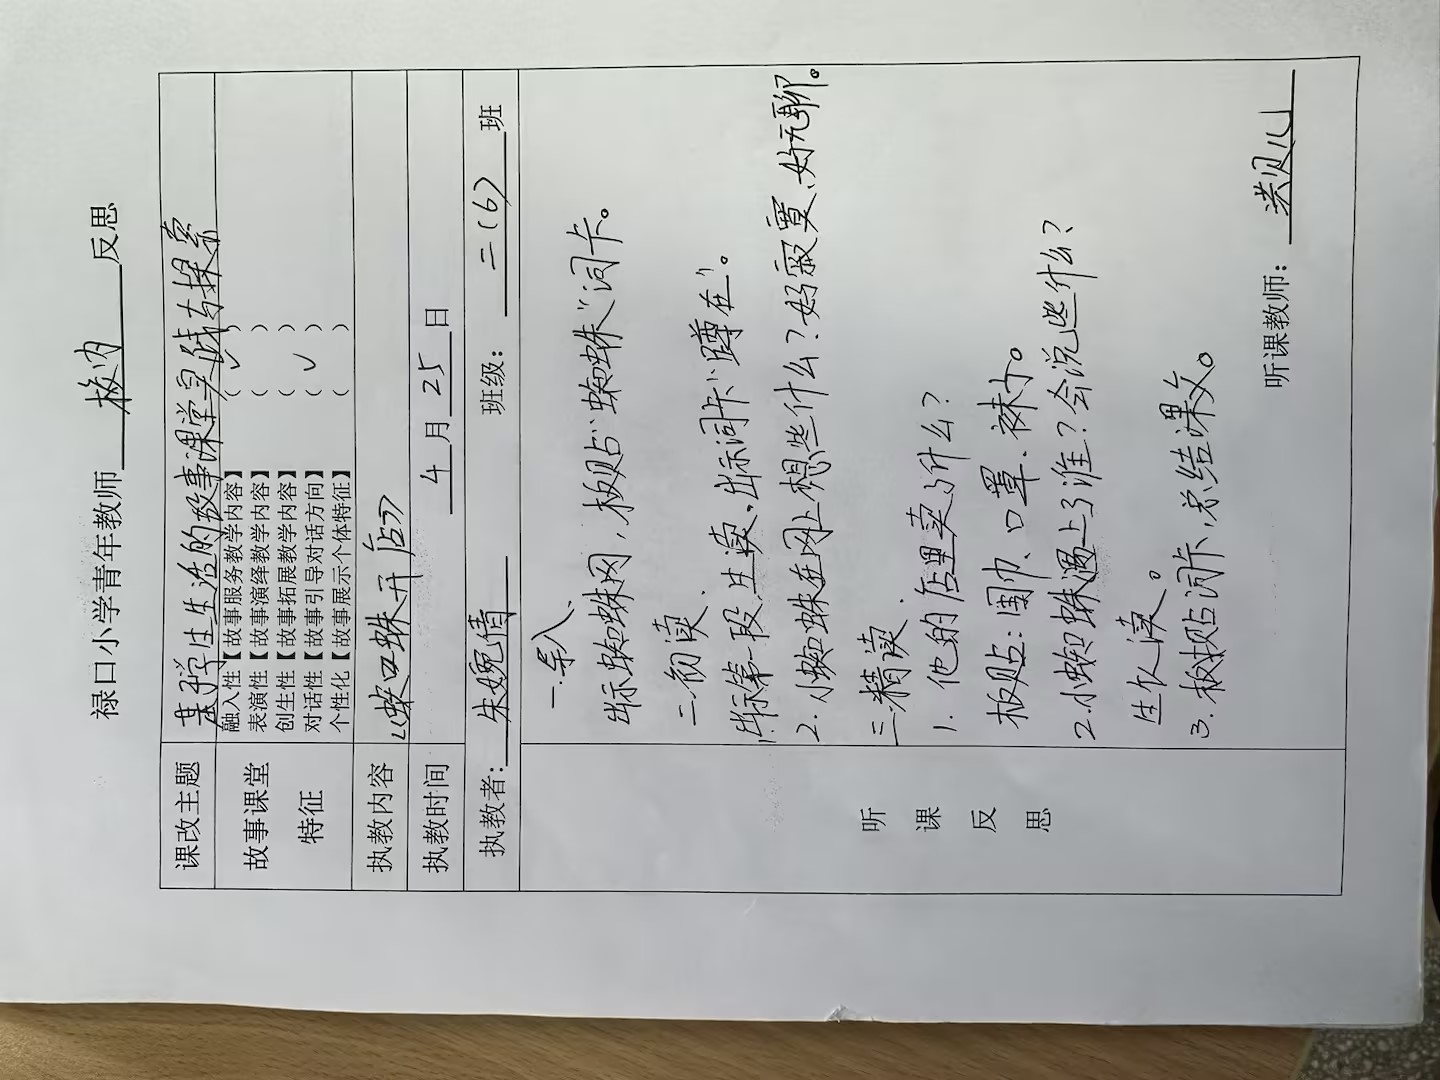 禄口小学青年教师 校内 反思
课改主题 基于学生生活的故事课堂实践与探索
故事课堂
特征
融入性【故事服务教学内容】 （ ✓ ）
表演性【故事演绎教学内容】 （ ）
创生性【故事拓展教学内容】 （ ）
对话性【故事引导对话方向】 （ ✓ ）
个性化【故事展示个体特征】 （ ）
执教内容 《蜘蛛开店》
执教时间 4 月 25 日
执教者: 朱婉倩 班级： 二（6） 班
听课反思
一.导入、
出示蜘蛛网，板贴“蜘蛛”词卡。
二.初读、
出示第一段，生读。出示词卡“蹲在”。
2. 小蜘蛛在网上想些什么？好寂寞、好无聊。
三.精读、
1. 他的店里卖了什么？
板贴：围巾、口罩、袜子。
2.小蜘蛛遇上了谁？会说些什么？
生仿读。
3. 板贴词卡，总结课文。
听课教师： 洪贝儿